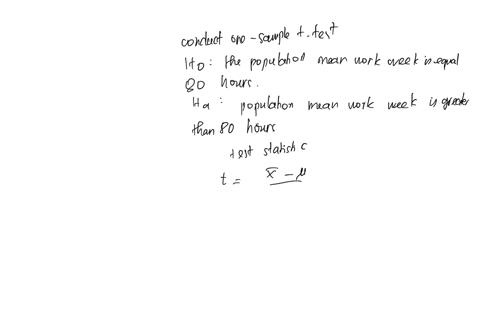 conduct one-sample t-test
H0: the population mean work week is equal
80 hours.
Ha: population mean work week is greater
than 80 hours
test statistic
t = x̄ - μ